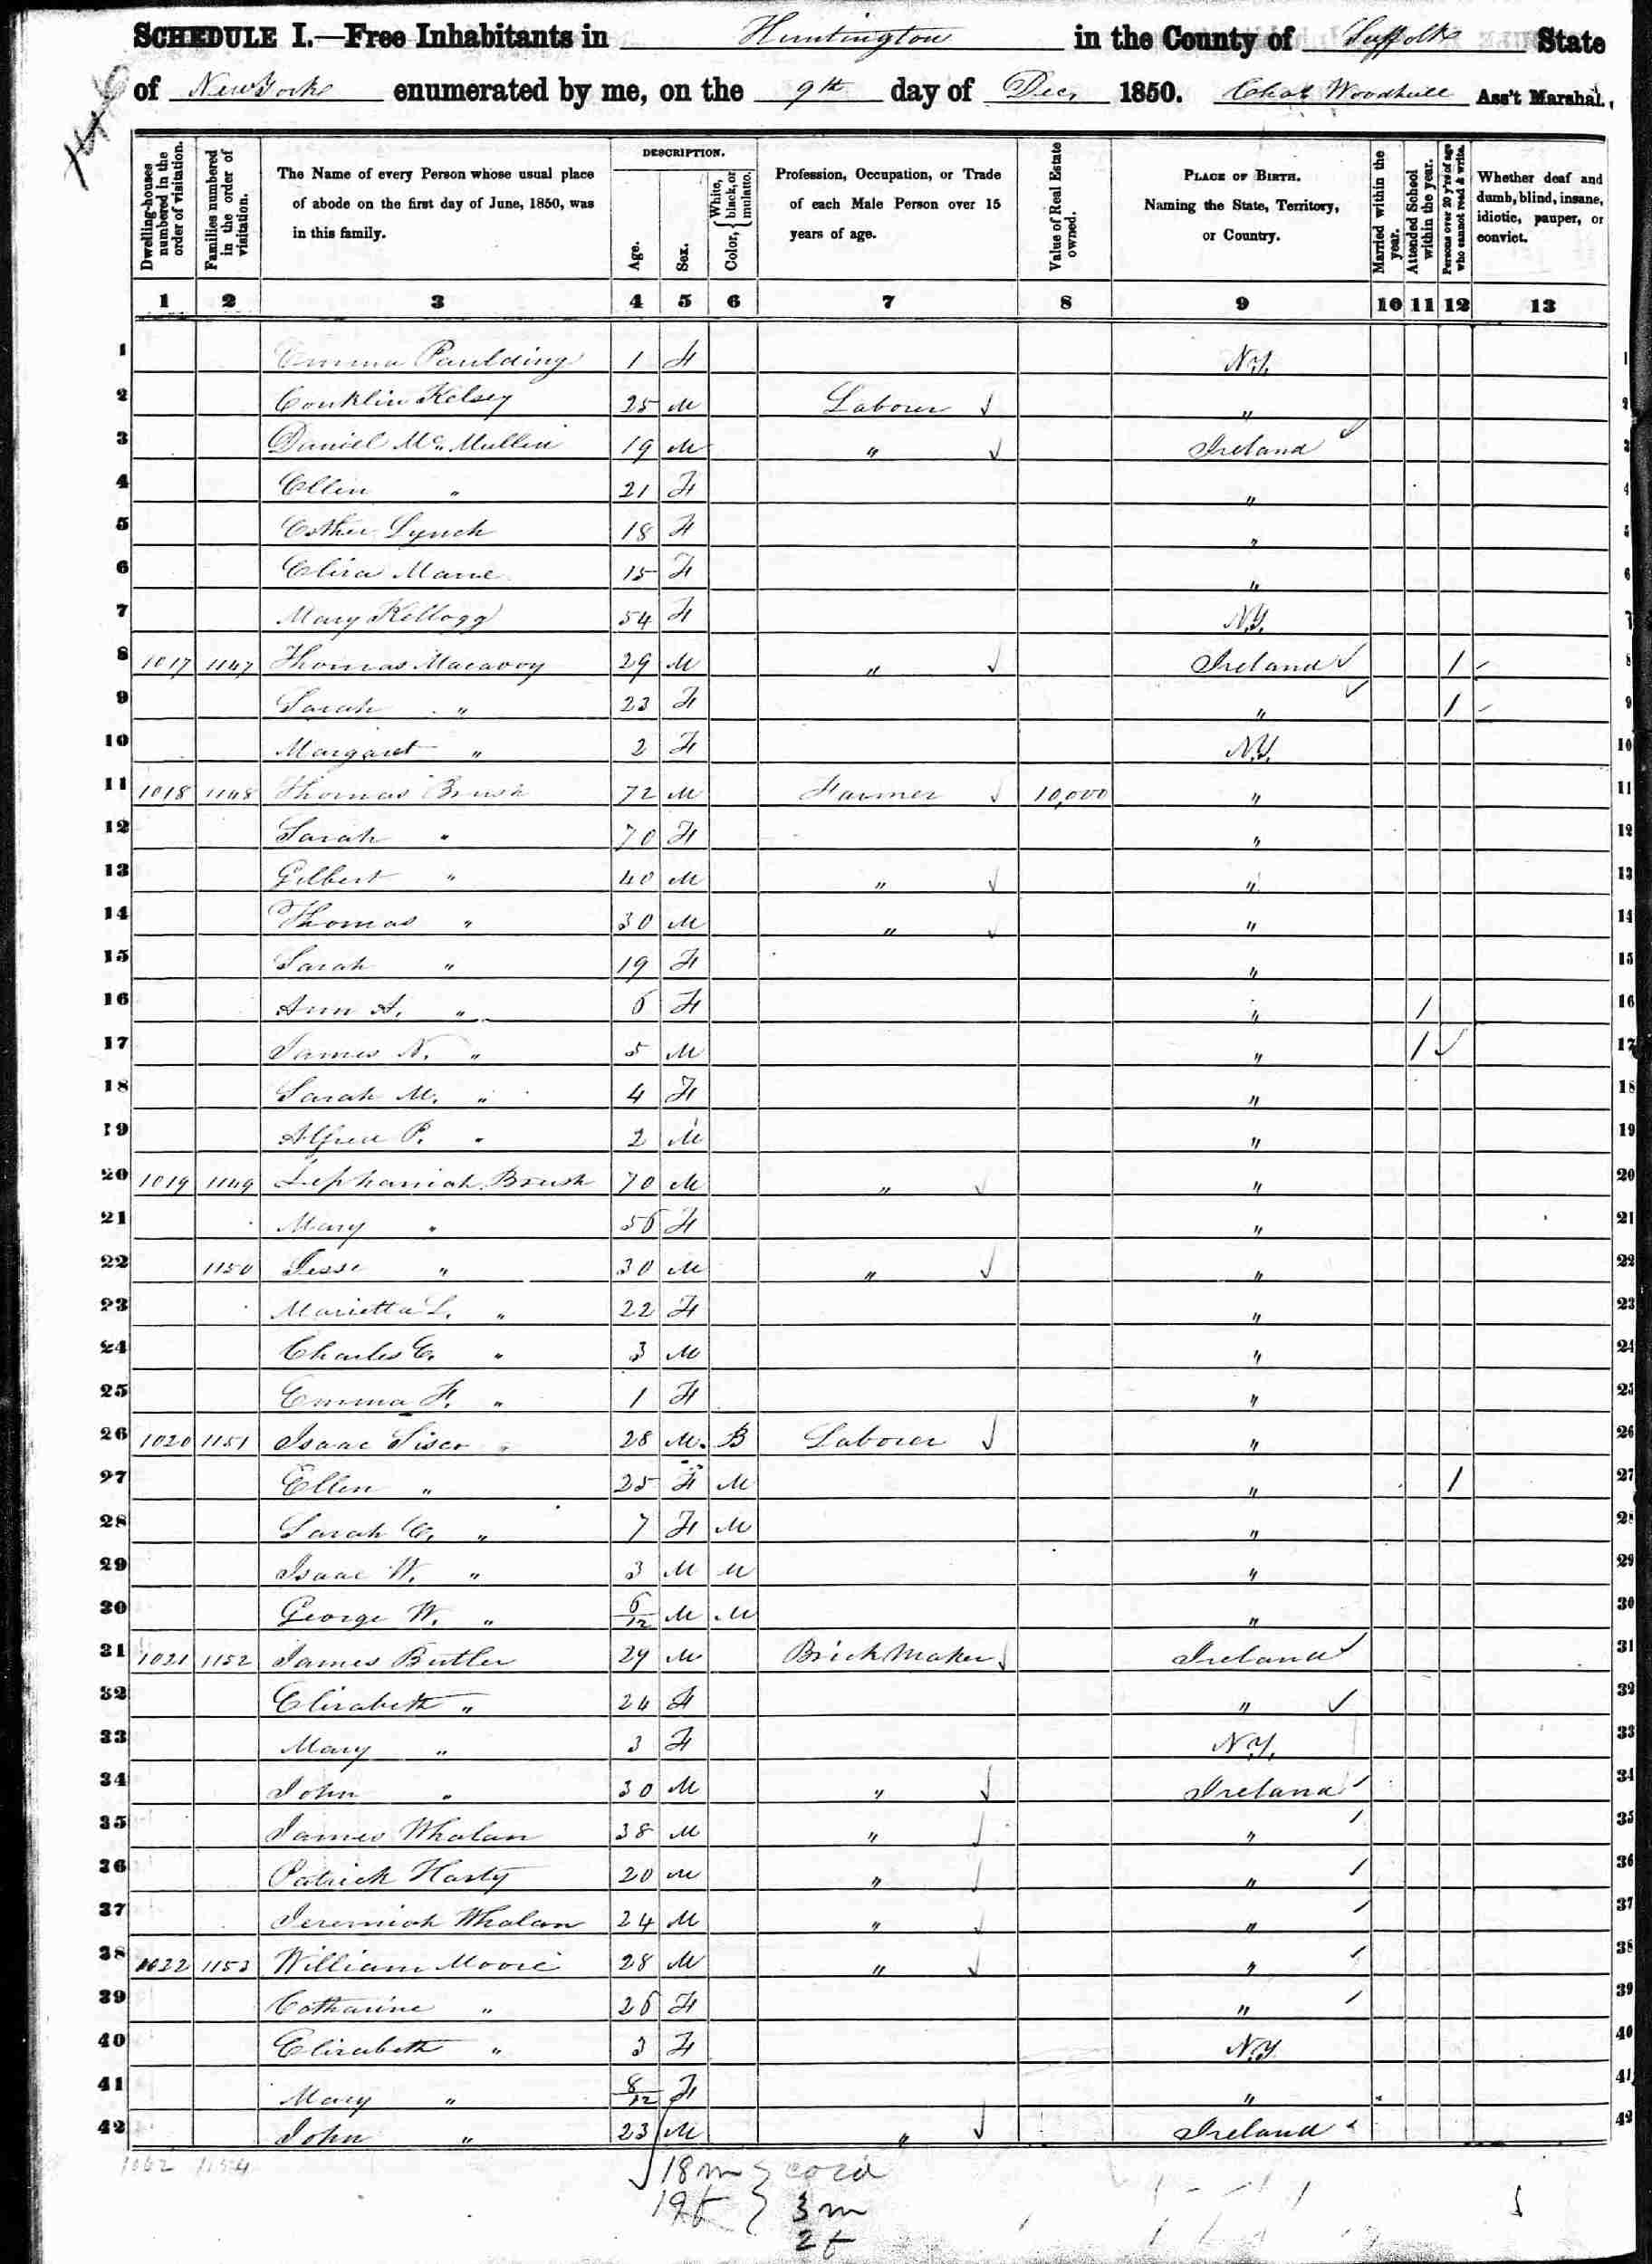 SCHEDULE I.—Free Inhabitants in Huntington in the County of Suffolk State
of New York enumerated by me, on the 9th day of Dec, 1850. Chas Woodhull Ass't Marshal.
Dwelling-houses numbered in the order of visitation.
Families numbered in the order of visitation.
The Name of every Person whose usual place of abode on the first day of June, 1850, was in this family.
DESCRIPTION.
Age.
Sex.
Color, { White, black, or mulatto.
Profession, Occupation, or Trade of each Male Person over 15 years of age.
Value of Real Estate owned.
PLACE OF BIRTH. Naming the State, Territory, or Country.
Married within the year.
Attended School within the year.
Persons over 20 y'rs of age who cannot read & write.
Whether deaf and dumb, blind, insane, idiotic, pauper, or convict.
1 2 3 4 5 6 7 8 9 10 11 12 13
1 Emma Paulding 1 F N.Y. 1
2 Conklin Kelsey 25 M Laborer " 2
3 Daniel Mc. Mullin 19 M " Ireland 3
4 Ellin " 21 F " 4
5 Esther Lynch 18 F " 5
6 Eliza 15 F " 6
7 Mary Kellogg 54 F N.Y. 7
8 1017 1147 Thomas Macavoy 29 M " Ireland 1 8
9 Sarah " 23 F " 1 9
10 Margaret " 2 F N.Y. 10
11 1018 1148 Thomas Brush 72 M Farmer 10,000 " 11
12 Sarah " 70 F " 12
13 Gilbert " 40 M " " 13
14 Thomas " 30 M " " 14
15 Sarah " 19 F " 15
16 Ann A. " 6 F " 1 16
17 James N. " 5 M " 1 17
18 Sarah M. " 4 F " 18
19 Alfred P. " 2 M " 19
20 1019 1149 Zephaniah Brush 70 M " " 20
21 Mary " 56 F " 21
22 1150 Jesse " 30 M " " 22
23 Marietta L. " 22 F " 23
24 Charles C. " 3 M " 24
25 Emma F. " 1 F " 25
26 1020 1151 Isaac Sisco 28 M. B Laborer " 26
27 Ellen " 25 F M " 1 27
28 Sarah C. " 7 F M " 28
29 Isaac W. " 3 M M " 29
30 George W. " 6/12 M M " 30
31 1021 1152 James Butler 29 M Brick Maker Ireland 31
32 Elizabeth " 24 F " 32
33 Mary " 3 F N.Y. 33
34 John " 30 M " Ireland 34
35 James Whalan 38 M " " 35
36 Patrick Harty 20 M " " 36
37 Jeremiah Whalan 24 M " " 37
38 1022 1153 William Moore 28 M " " 38
39 Catharine " 26 F " 39
40 Elizabeth " 3 F N.Y 40
41 Mary " 8/12 F " 41
42 John " 23 M " Ireland 42
1062 1154
18 m } cold
19 f } 3 m
2 f